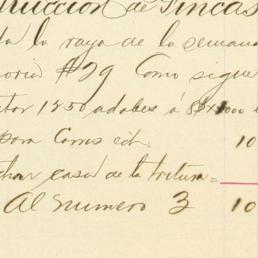 rucción de Fincas
da la raya de la semana
oria #29 Como sigue
tor 1250 adobes á
para Corros id. 10
char casa de la tritura=
Al numero 3 10